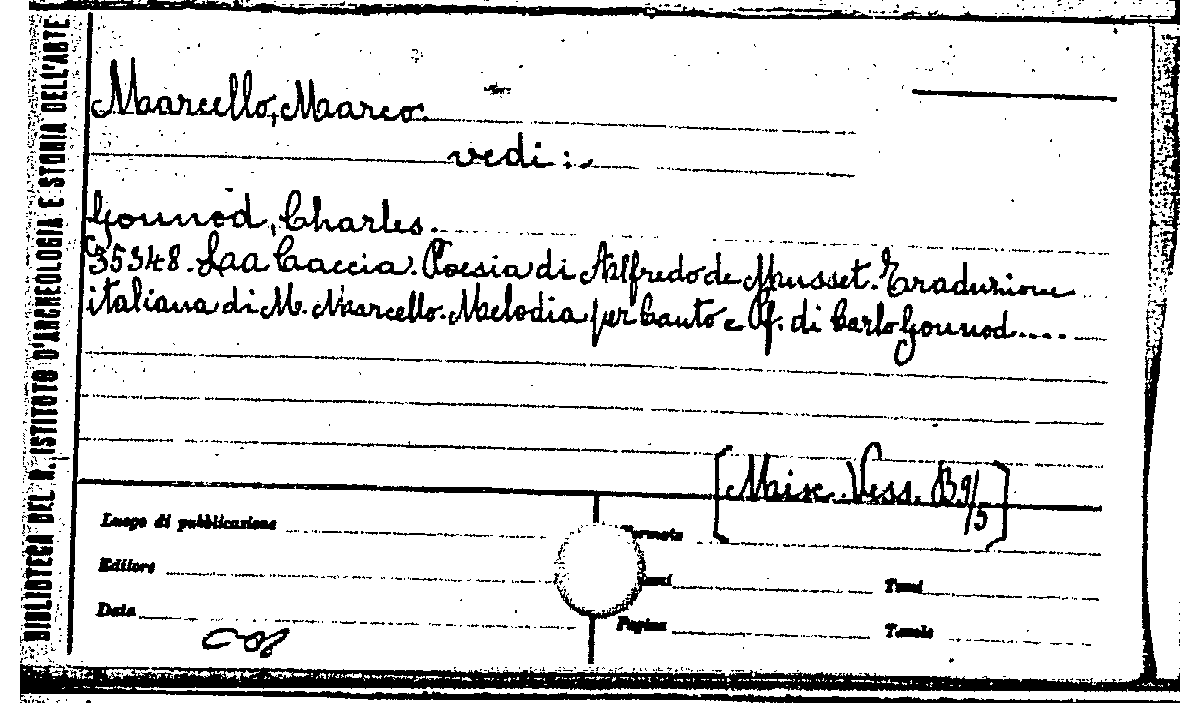 BIBLIOTECA DEL R. ISTITUTO D'ARCHEOLOGIA E STORIA DELL'ARTE
Marcello, Marco.
vedi:
Gounod, Charles.
35348. La Caccia. Poesia di Alfredo de Musset. Traduzione
italiana di M. Marcello. Melodia per Canto e Pf. di Carlo Gounod....
[Misc. Vess. B.9/5]
Luogo di pubblicazione
Formato
Editore
Tomi
Data
Pagine
Tavole